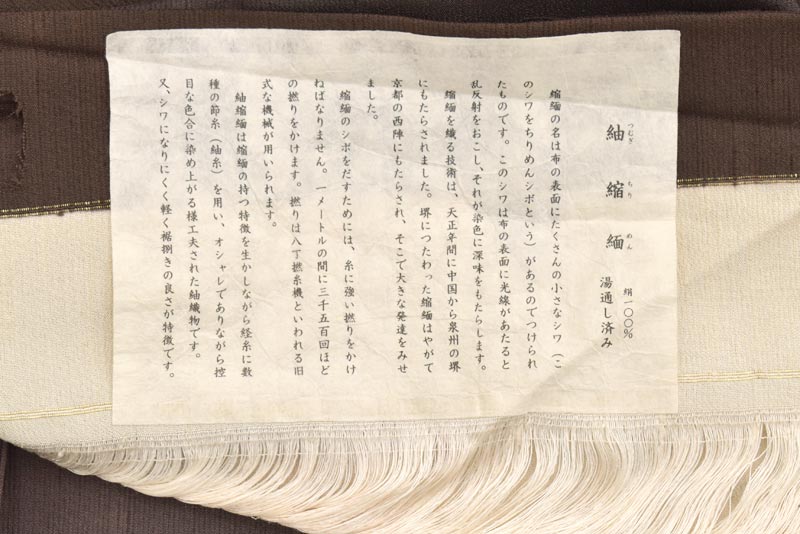 紬縮緬 絹一〇〇% 湯通し済み
つむぎ ちり めん
縮緬の名は布の表面にたくさんの小さなシワ(こ
のシワをちりめんシボという)があるのでつけられ
たものです。このシワは布の表面に光線があたると
乱反射をおこし、それが染色に深味をもたらします。
縮緬を織る技術は、天正年間に中国から泉州の堺
にもたらされました。堺につたわった縮緬はやがて
京都の西陣にもたらされ、そこで大きな発達をみせ
ました。
縮緬のシボをだすためには、糸に強い撚りをかけ
ねばなりません。一メートルの間に三千五百回ほど
の撚りをかけます。撚りは八丁撚糸機といわれる旧
式な機械が用いられます。
紬縮緬は縮緬の持つ特徴を生かしながら経糸に数
種の節糸(紬糸)を用い、オシャレでありながら控
目な色合に染め上がる様工夫された紬織物です。
又、シワになりにくく軽く裾捌きの良さが特徴です。